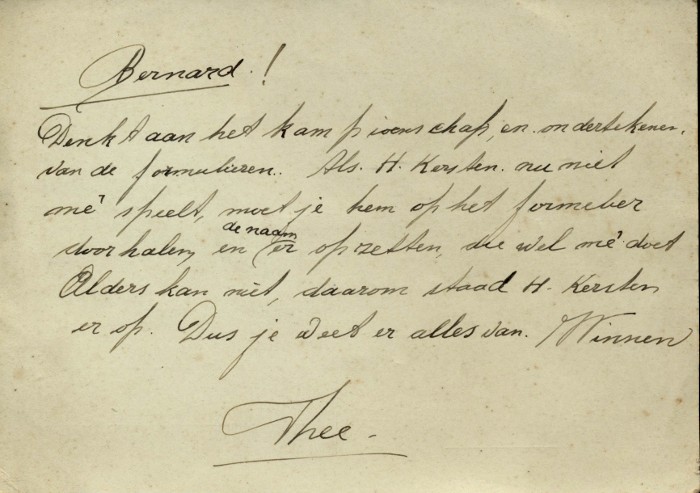 Bernard!
Denkt aan het kampioenschap, en ondertekenen.
van de formulieren. Als H. Kersten nu niet
meê speelt, moet je hem op het formelier
doorhalen, en de naam er opzetten, die wel meê doet
Alders kan niet, daarom staad H. Kersten
er op. Dus je weet er alles van. Winnen
Thee.